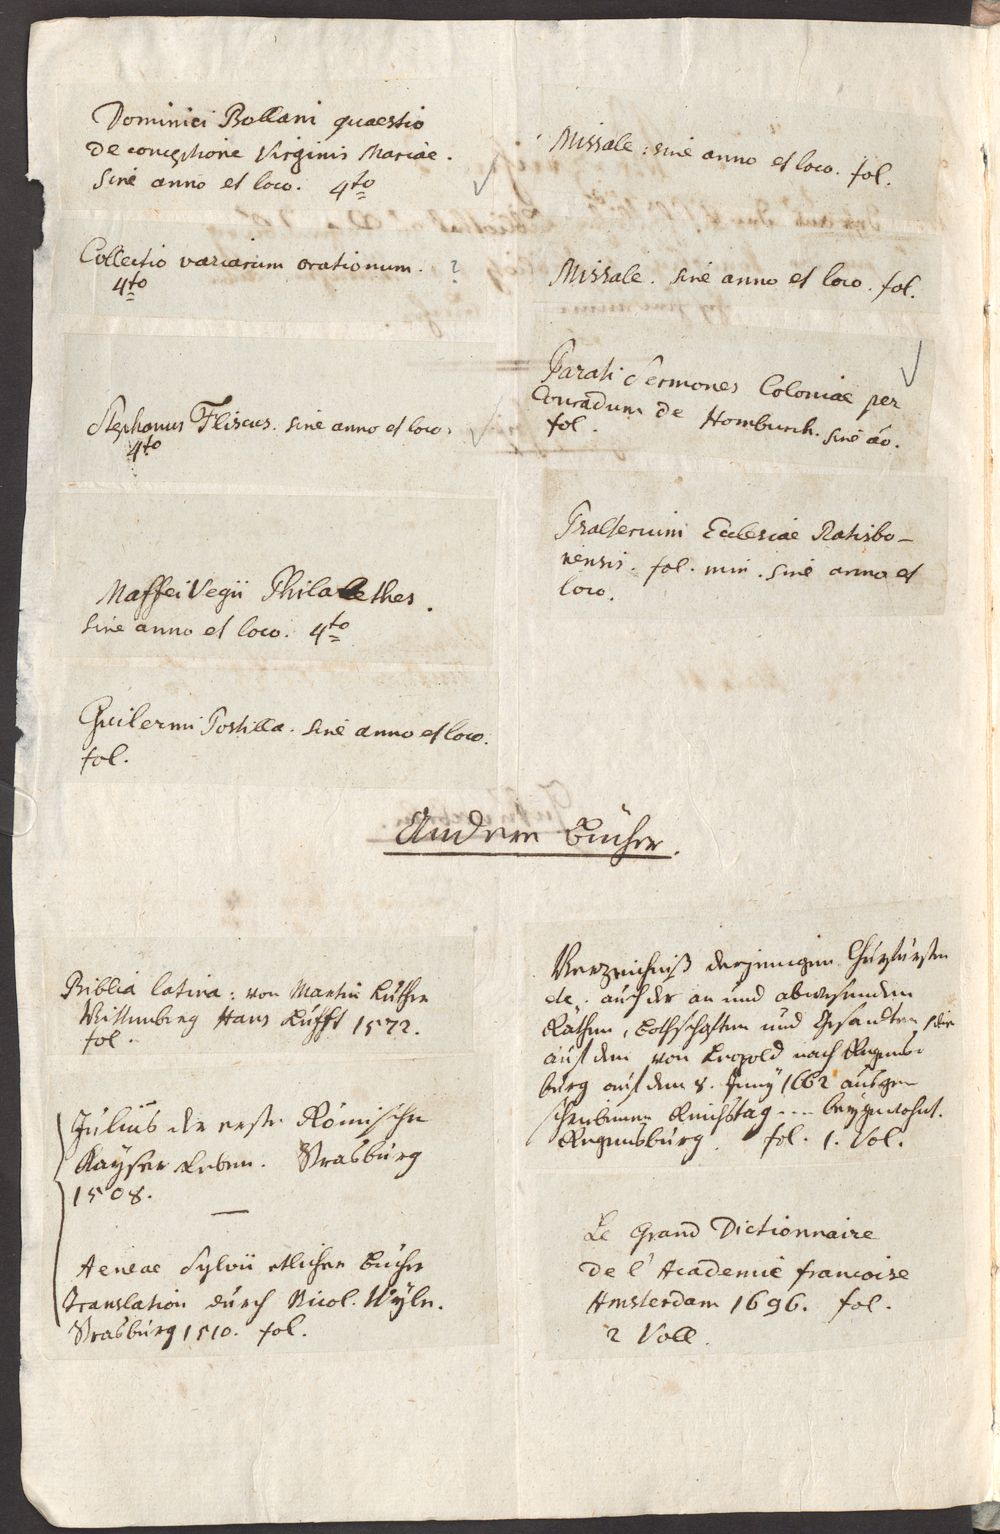 Dominici Bollani quaestio
de conceptione Virginis Mariae.
Sine anno et loco. 4to
Collectio variarum orationum. ?
4to
Stephanus Fliscus. Sine anno et loco.
4to
Maffei Vegii Philalethes.
Sine anno et loco. 4to
Guilermi Postilla. Sine anno et loco.
fol.
Missale: sine anno et loco. fol.
Missale. Sine anno et loco. fol.
Parati Sermones Coloniae per
Conradum de Homburch. Sine ao.
fol.
Psalterium Ecclesiae Ratisbo-
nensis. fol. min. Sine anno et
loco.
Andere Bücher.
Biblia latina: von Martin Luther
Wittenberg Hans Lufft 1572.
fol.
Julius der erste Römische
Kayser Leben. Strasburg
1508.
Aeneae Sylvii etlicher Bücher
Translation durch Nicol. Wyle.
Strasburg 1510. fol.
Verzeichniß derjenigen Churfürsten
etc. auch der an und abwesenden
Räthen, Bothschaften und Gesandten, die
auf dem von Leopold nach Regens-
burg auf dem 8. Juny 1662 ausge-
schriebenen Reichstag --- beygewohnt.
Regensburg. fol. 1. Vol.
Le Grand Dictionnaire
de l'Academie francoise
Amsterdam 1696. fol.
2 Voll.